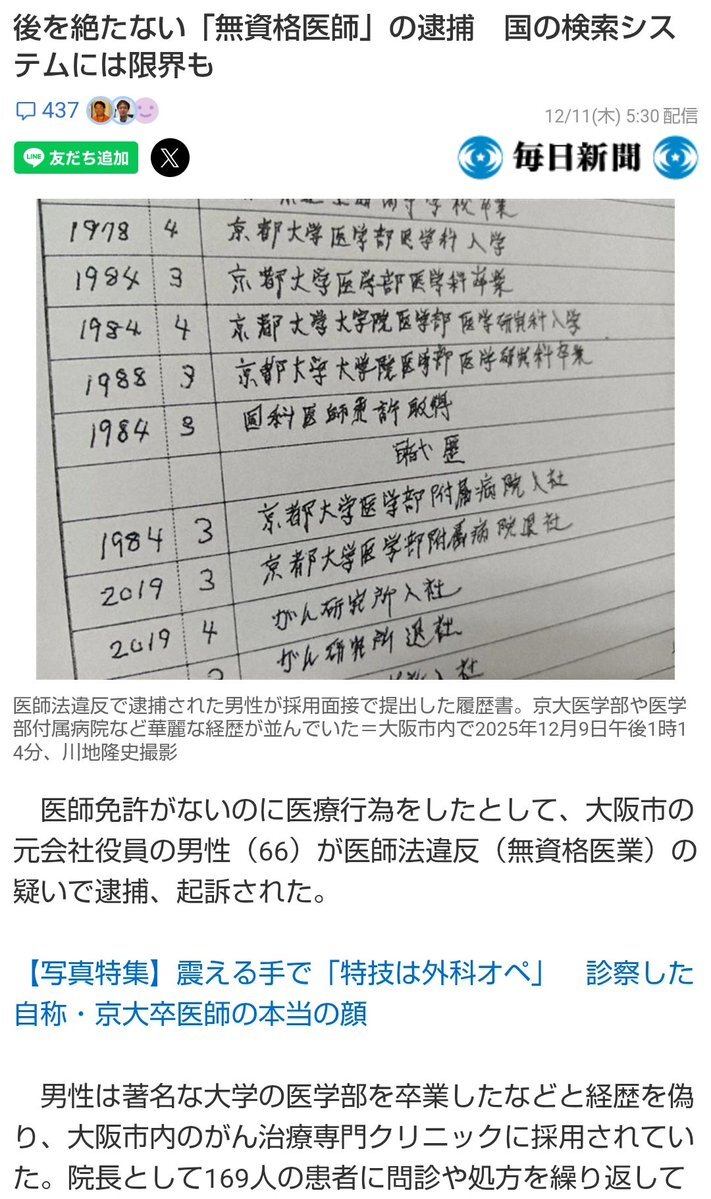 後を絶たない「無資格医師」の逮捕　国の検索シス
テムには限界も
437
12/11(木) 5:30配信
LINE 友だち追加
X
毎日新聞
1978 4 京都大学医学部医学科入学
1984 3 京都大学医学部医学科卒業
1984 4 京都大学大学院医学部医学研究科入学
1988 3 京都大学大学院医学部医学研究科卒業
1984 3 医師免許取得
職歴
1984 3 京都大学医学部附属病院入社
2019 3 京都大学医学部附属病院退社
2019 4 がん研究所入社
がん研究所退社
入社
医師法違反で逮捕された男性が採用面接で提出した履歴書。京大医学部や医学
部付属病院など華麗な経歴が並んでいた＝大阪市内で2025年12月9日午後1時1
4分、川地隆史撮影
医師免許がないのに医療行為をしたとして、大阪市の
元会社役員の男性（66）が医師法違反（無資格医業）の
疑いで逮捕、起訴された。
【写真特集】震える手で「特技は外科オペ」　診察した
自称・京大卒医師の本当の顔
男性は著名な大学の医学部を卒業したなどと経歴を偽
り、大阪市内のがん治療専門クリニックに採用されてい
た。院長として169人の患者に問診や処方を繰り返して